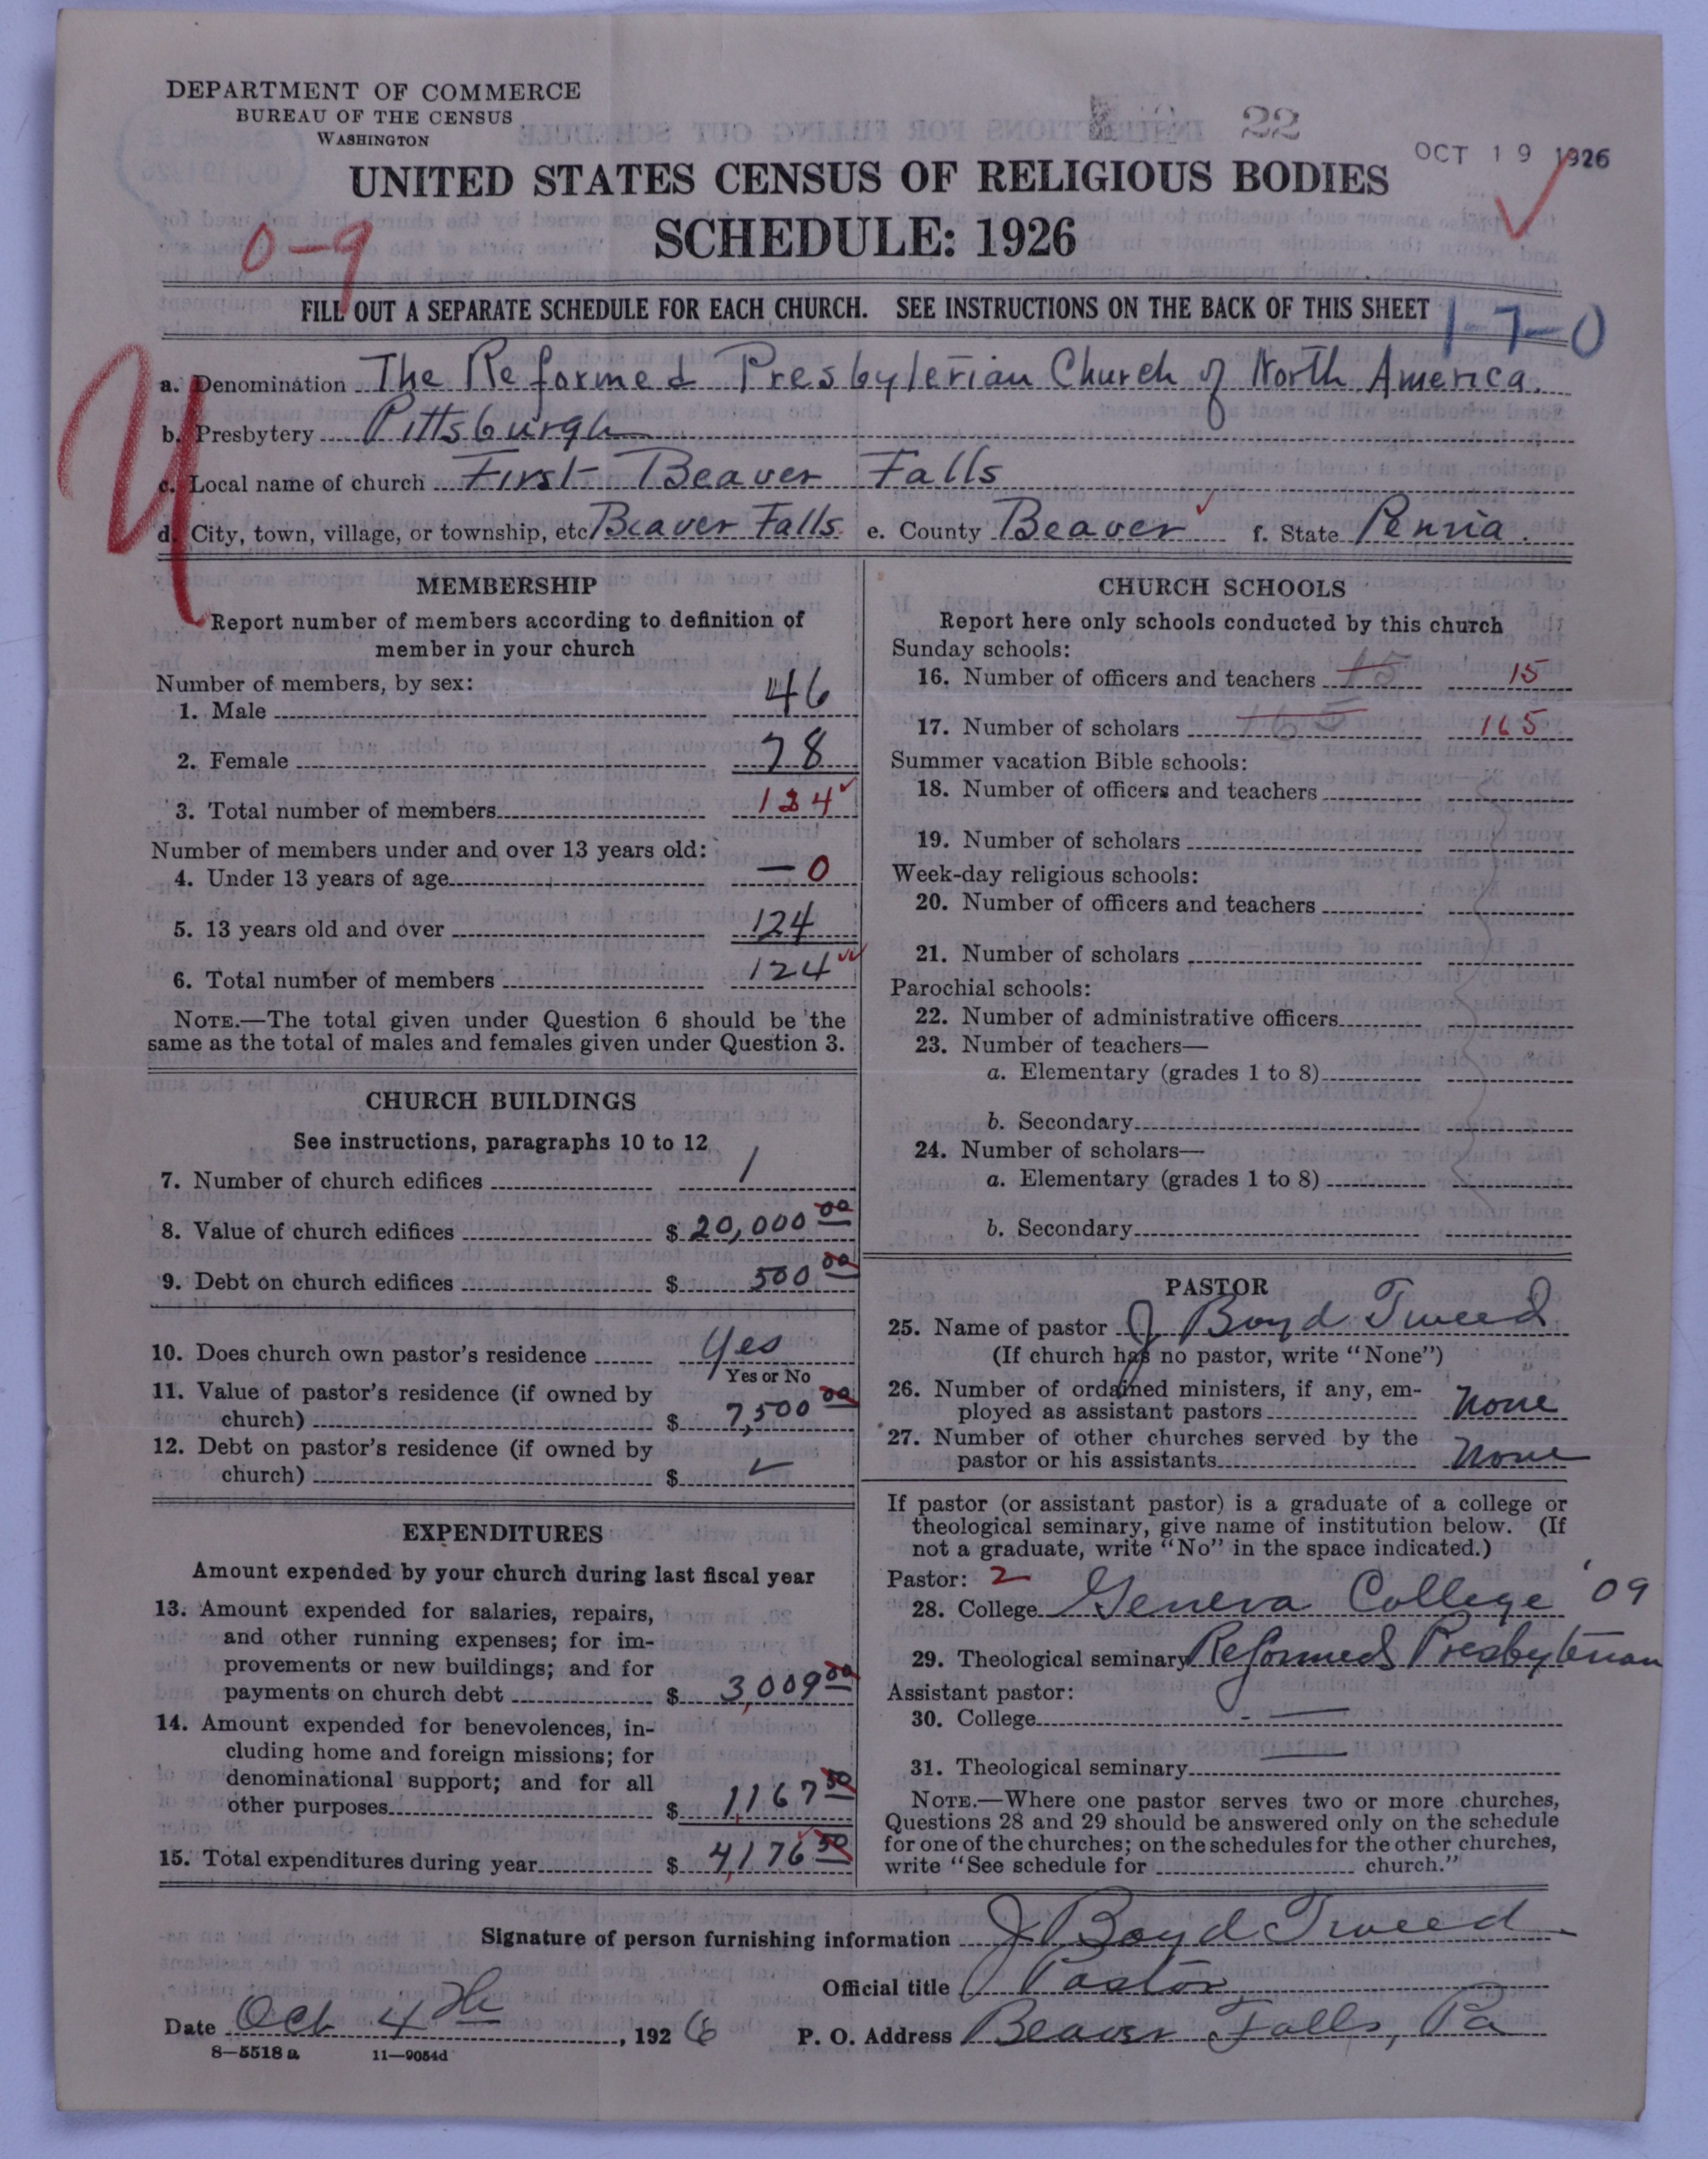 DEPARTMENT OF COMMERCE
BUREAU OF THE CENSUS
WASHINGTON
22
OCT 19 1926
UNITED STATES CENSUS OF RELIGIOUS BODIES
SCHEDULE: 1926
0-9
FILL OUT A SEPARATE SCHEDULE FOR EACH CHURCH. SEE INSTRUCTIONS ON THE BACK OF THIS SHEET
1-7-0
a. Denomination The Reformed Presbyterian Church of North America.
b. Presbytery Pittsburgh
c. Local name of church First Beaver Falls
d. City, town, village, or township, etc Beaver Falls. e. County Beaver f. State Penna.
MEMBERSHIP
Report number of members according to definition of
member in your church
Number of members, by sex:
1. Male 46
2. Female 78
3. Total number of members 124
Number of members under and over 13 years old:
4. Under 13 years of age — 0
5. 13 years old and over 124
6. Total number of members 124
NOTE.—The total given under Question 6 should be the
same as the total of males and females given under Question 3.
CHURCH BUILDINGS
See instructions, paragraphs 10 to 12
7. Number of church edifices 1
8. Value of church edifices $ 20,000 00
9. Debt on church edifices $ 500 00
10. Does church own pastor's residence Yes
Yes or No
11. Value of pastor's residence (if owned by
church) $ 7,500 00
12. Debt on pastor's residence (if owned by
church) $
EXPENDITURES
Amount expended by your church during last fiscal year
13. Amount expended for salaries, repairs,
and other running expenses; for im-
provements or new buildings; and for
payments on church debt $ 3,009 00
14. Amount expended for benevolences, in-
cluding home and foreign missions; for
denominational support; and for all
other purposes $ 1,167 50
15. Total expenditures during year $ 4,176 50
CHURCH SCHOOLS
Report here only schools conducted by this church
Sunday schools:
16. Number of officers and teachers 15 15
17. Number of scholars 165 165
Summer vacation Bible schools:
18. Number of officers and teachers
19. Number of scholars
Week-day religious schools:
20. Number of officers and teachers
21. Number of scholars
Parochial schools:
22. Number of administrative officers
23. Number of teachers—
a. Elementary (grades 1 to 8)
b. Secondary
24. Number of scholars—
a. Elementary (grades 1 to 8)
b. Secondary
PASTOR
25. Name of pastor J Boyd Tweed
(If church has no pastor, write "None")
26. Number of ordained ministers, if any, em-
ployed as assistant pastors None
27. Number of other churches served by the
pastor or his assistants None
If pastor (or assistant pastor) is a graduate of a college or
theological seminary, give name of institution below. (If
not a graduate, write "No" in the space indicated.)
Pastor: 2
28. College Geneva College '09
29. Theological seminary Reformed Presbyterian
Assistant pastor:
30. College —
31. Theological seminary —
NOTE.—Where one pastor serves two or more churches,
Questions 28 and 29 should be answered only on the schedule
for one of the churches; on the schedules for the other churches,
write "See schedule for church."
Signature of person furnishing information J Boyd Tweed
Official title Pastor
Date Oct 4th, 1926 P. O. Address Beaver Falls, Pa
8—5518a 11—9054d